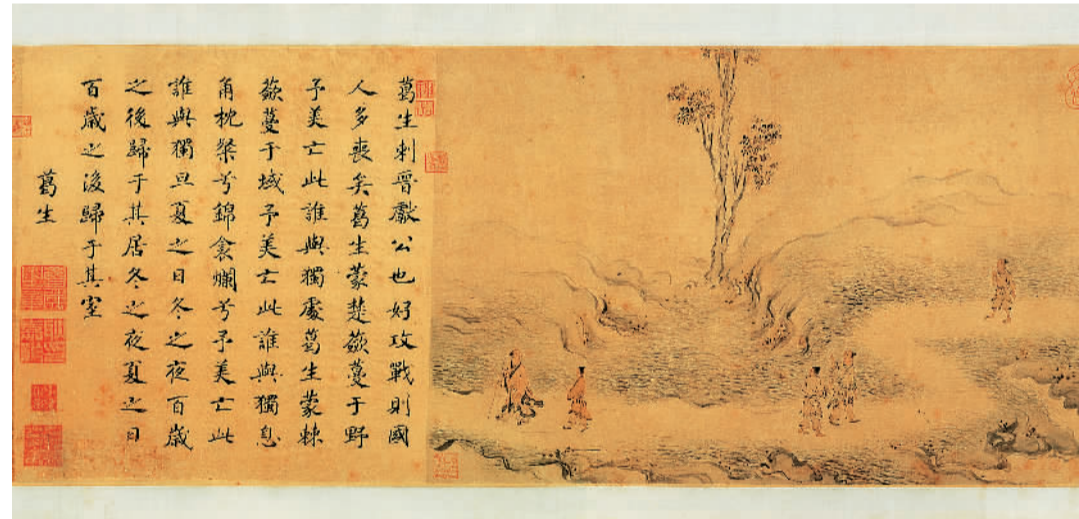 葛生刺晉獻公也好攻戰則國
人多喪矣葛生蒙楚蘞蔓于野
予美亡此誰與獨處葛生蒙棘
蘞蔓于域予美亡此誰與獨息
角枕粲兮錦衾爛兮予美亡此
誰與獨旦夏之日冬之夜百歲
之後歸于其居冬之夜夏之日
百歲之後歸于其室
葛生